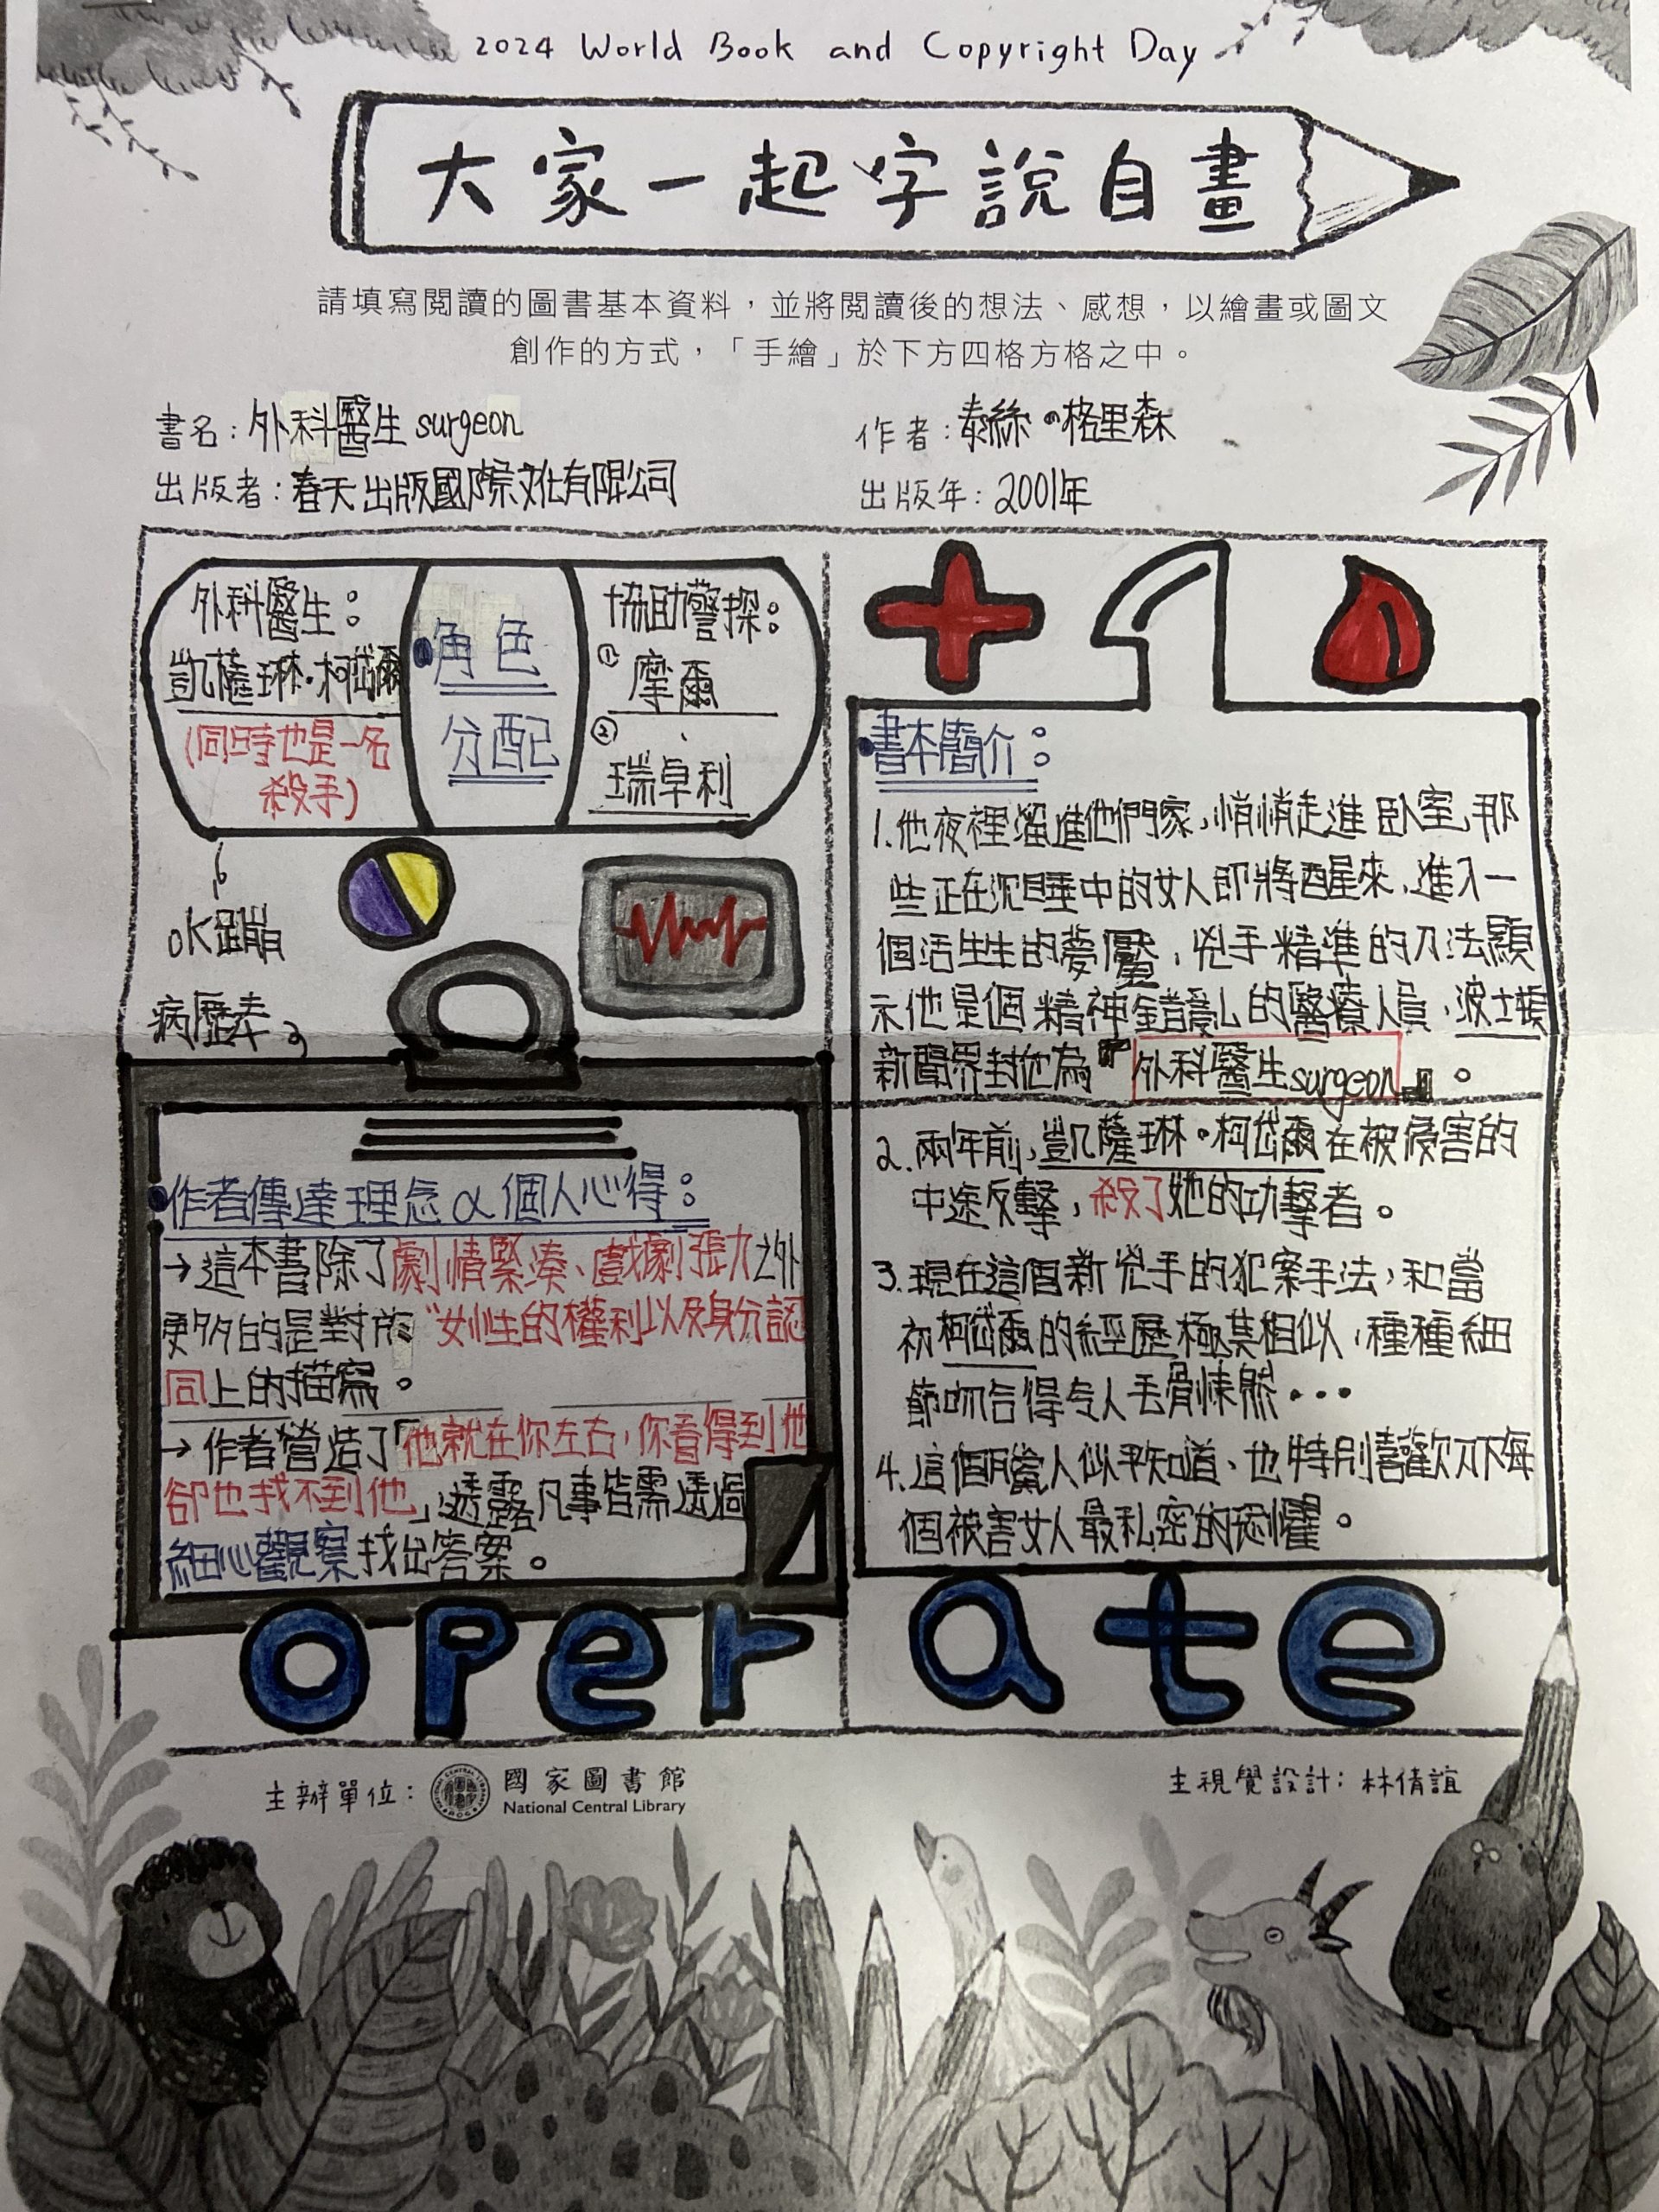 2024 World Book and Copyright Day
大家一起字說自畫
請填寫閱讀的圖書基本資料，並將閱讀後的想法、感想，以繪畫或圖文
創作的方式，「手繪」於下方四格方格之中。
書名：外科醫生 surgeon
作者：泰絲·格里森
出版者：春天出版國際文化有限公司
出版年：2001年
外科醫生：
凱薩琳·柯岱爾
(同時也是一名
殺手)
角色
分配
協助警探：
①
摩爾
②
瑞卓利
OK蹦
病歷表
作者傳達理念 & 個人心得：
→這本書除了劇情緊湊、戲劇張力之外
更多的是對於"女性的權利以及身分認
同上的描寫。
→作者營造了「他就在你左右，你看得到他
卻也找不到他」，透露凡事皆需透過
細心觀察找出答案。
書本簡介：
1.他夜裡溜進他們家，悄悄走進臥室，那
些正在沉睡中的女人即將醒來，進入一
個活生生的夢魘，兇手精準的刀法顯
示他是個精神錯亂的醫療人員，波士頓
新聞界封他為『外科醫生surgeon』。
2.兩年前，凱薩琳·柯岱爾在被侵害的
中途反擊，殺了她的功擊者。
3.現在這個新兇手的犯案手法，和當
初柯岱爾的經歷極其相似，種種細
節吻合得令人毛骨悚然...
4.這個人似乎知道、也特別喜歡刀下每
個被害女人最私密的恐懼。
operate
主辦單位：
國家圖書館
National Central Library
主視覺設計：林倩誼